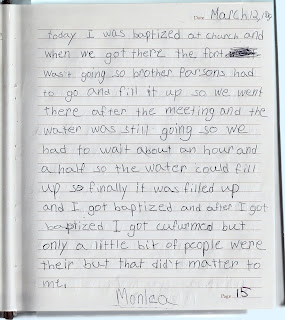 Date March 12, 
today I was baptized at church and
when we got there the font
wasn't going so brother Parsons had
to go and fill it up so we went
there after the meeting and the
water was still going so we
had to wait about an hour and
a half so the water could fill
up so finally it was filled up
and I got baptized and after I got
baptized I got cufurmed but
only a little bit of people were
their but that didn't matter to
me.
Monica
Page 15